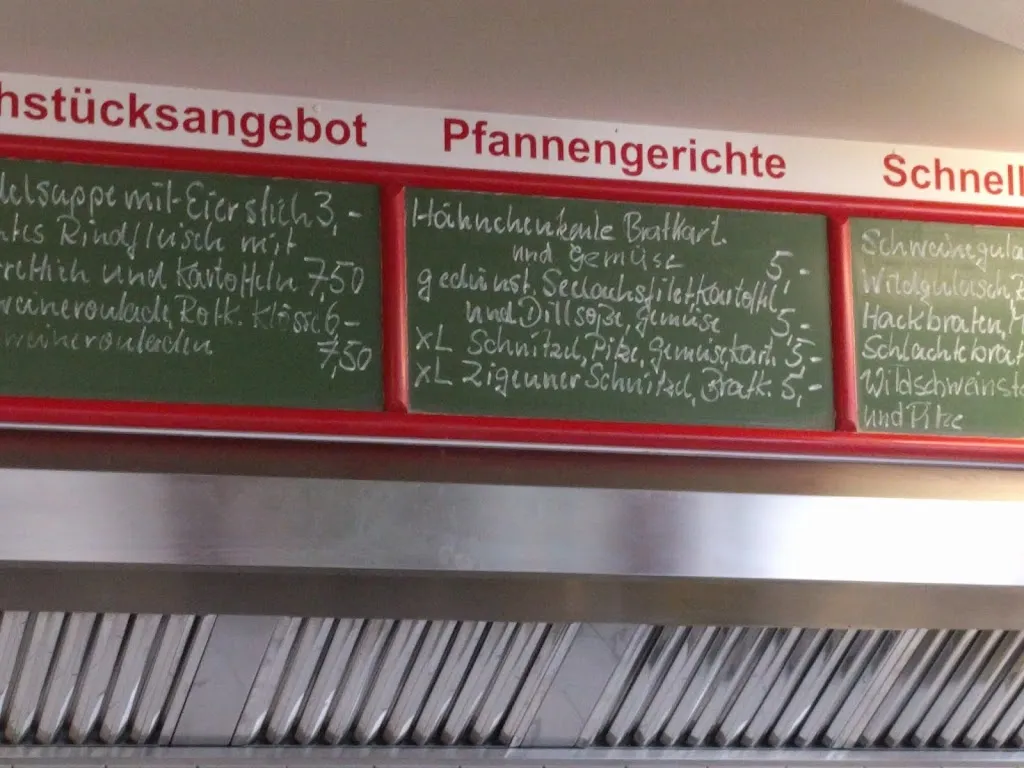 hstücksangebot
delsuppe mit Eierstich 3,-
Rindfleisch mit
und Kartoffeln 7,50
Rotk. Klösse 6,-
7,50
Pfannengerichte
Hähnchenkeule Bratkart.
und Gemüse 5,-
gedünst. Seelachsfilet Kartoffel,
und Dillsoße, Gemüse 5,-
XL Schnitzel, Pilze, Gemüse kart. 5,-
XL Zigeuner Schnitzel, Bratk. 5,-
Schnell
Schweinegula
Wildgulasch,
Hackbraten,
Schlachtebrat
Wildschweinst
und Pilze